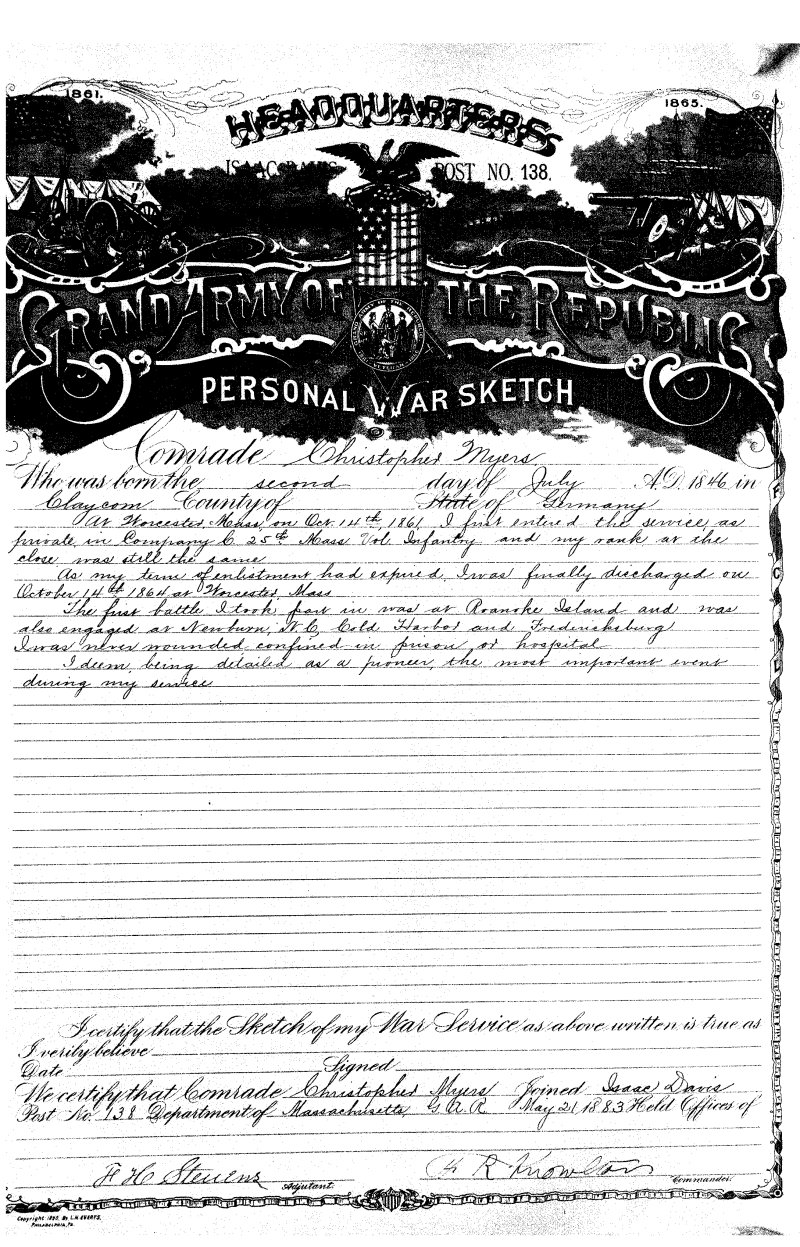 1861.
1865.
HEADQUARTERS
ISAAC DAVIS POST NO. 138.
GRAND ARMY OF THE REPUBLIC
PERSONAL WAR SKETCH
Comrade Christopher Myers
Who was born the second day of July A.D. 1846 in
Claycom County of State of Germany
At Worcester, Mass, on Oct. 14th, 1861 I first entered the service, as
private, in Company C. 25th Mass Vol. Infantry and my rank at the
close was still the same
As my term of enlistment had expired, I was finally discharged on
October 14th 1864 at Worcester, Mass
The first battle I took part in was at Roanoke Island and was
also engaged at Newburn, N.C, Cold Harbor and Fredericksburg
I was never wounded confined in prison or hospital
I deem, being detailed as a pioneer, the most important event
during my service
I certify that the Sketch of my War Service as above written is true as
I verily believe
Date Signed
We certify that Comrade Christopher Myers Joined Isaac Davis
Post No. 138 Department of Massachusetts, G.A.R May 21 1883 Held Offices of
F H Stevens Adjutant. R Knowlton Commander.
Copyright 1890, By L.H. EVERTS.
PHILADELPHIA, PA.